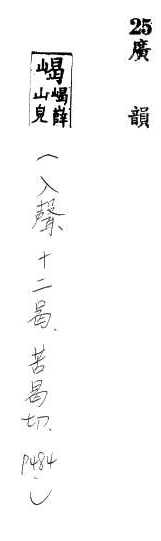 25廣韻
嵑 嵑嶭山皃
(入聲、十二曷、苦曷切、P484.)